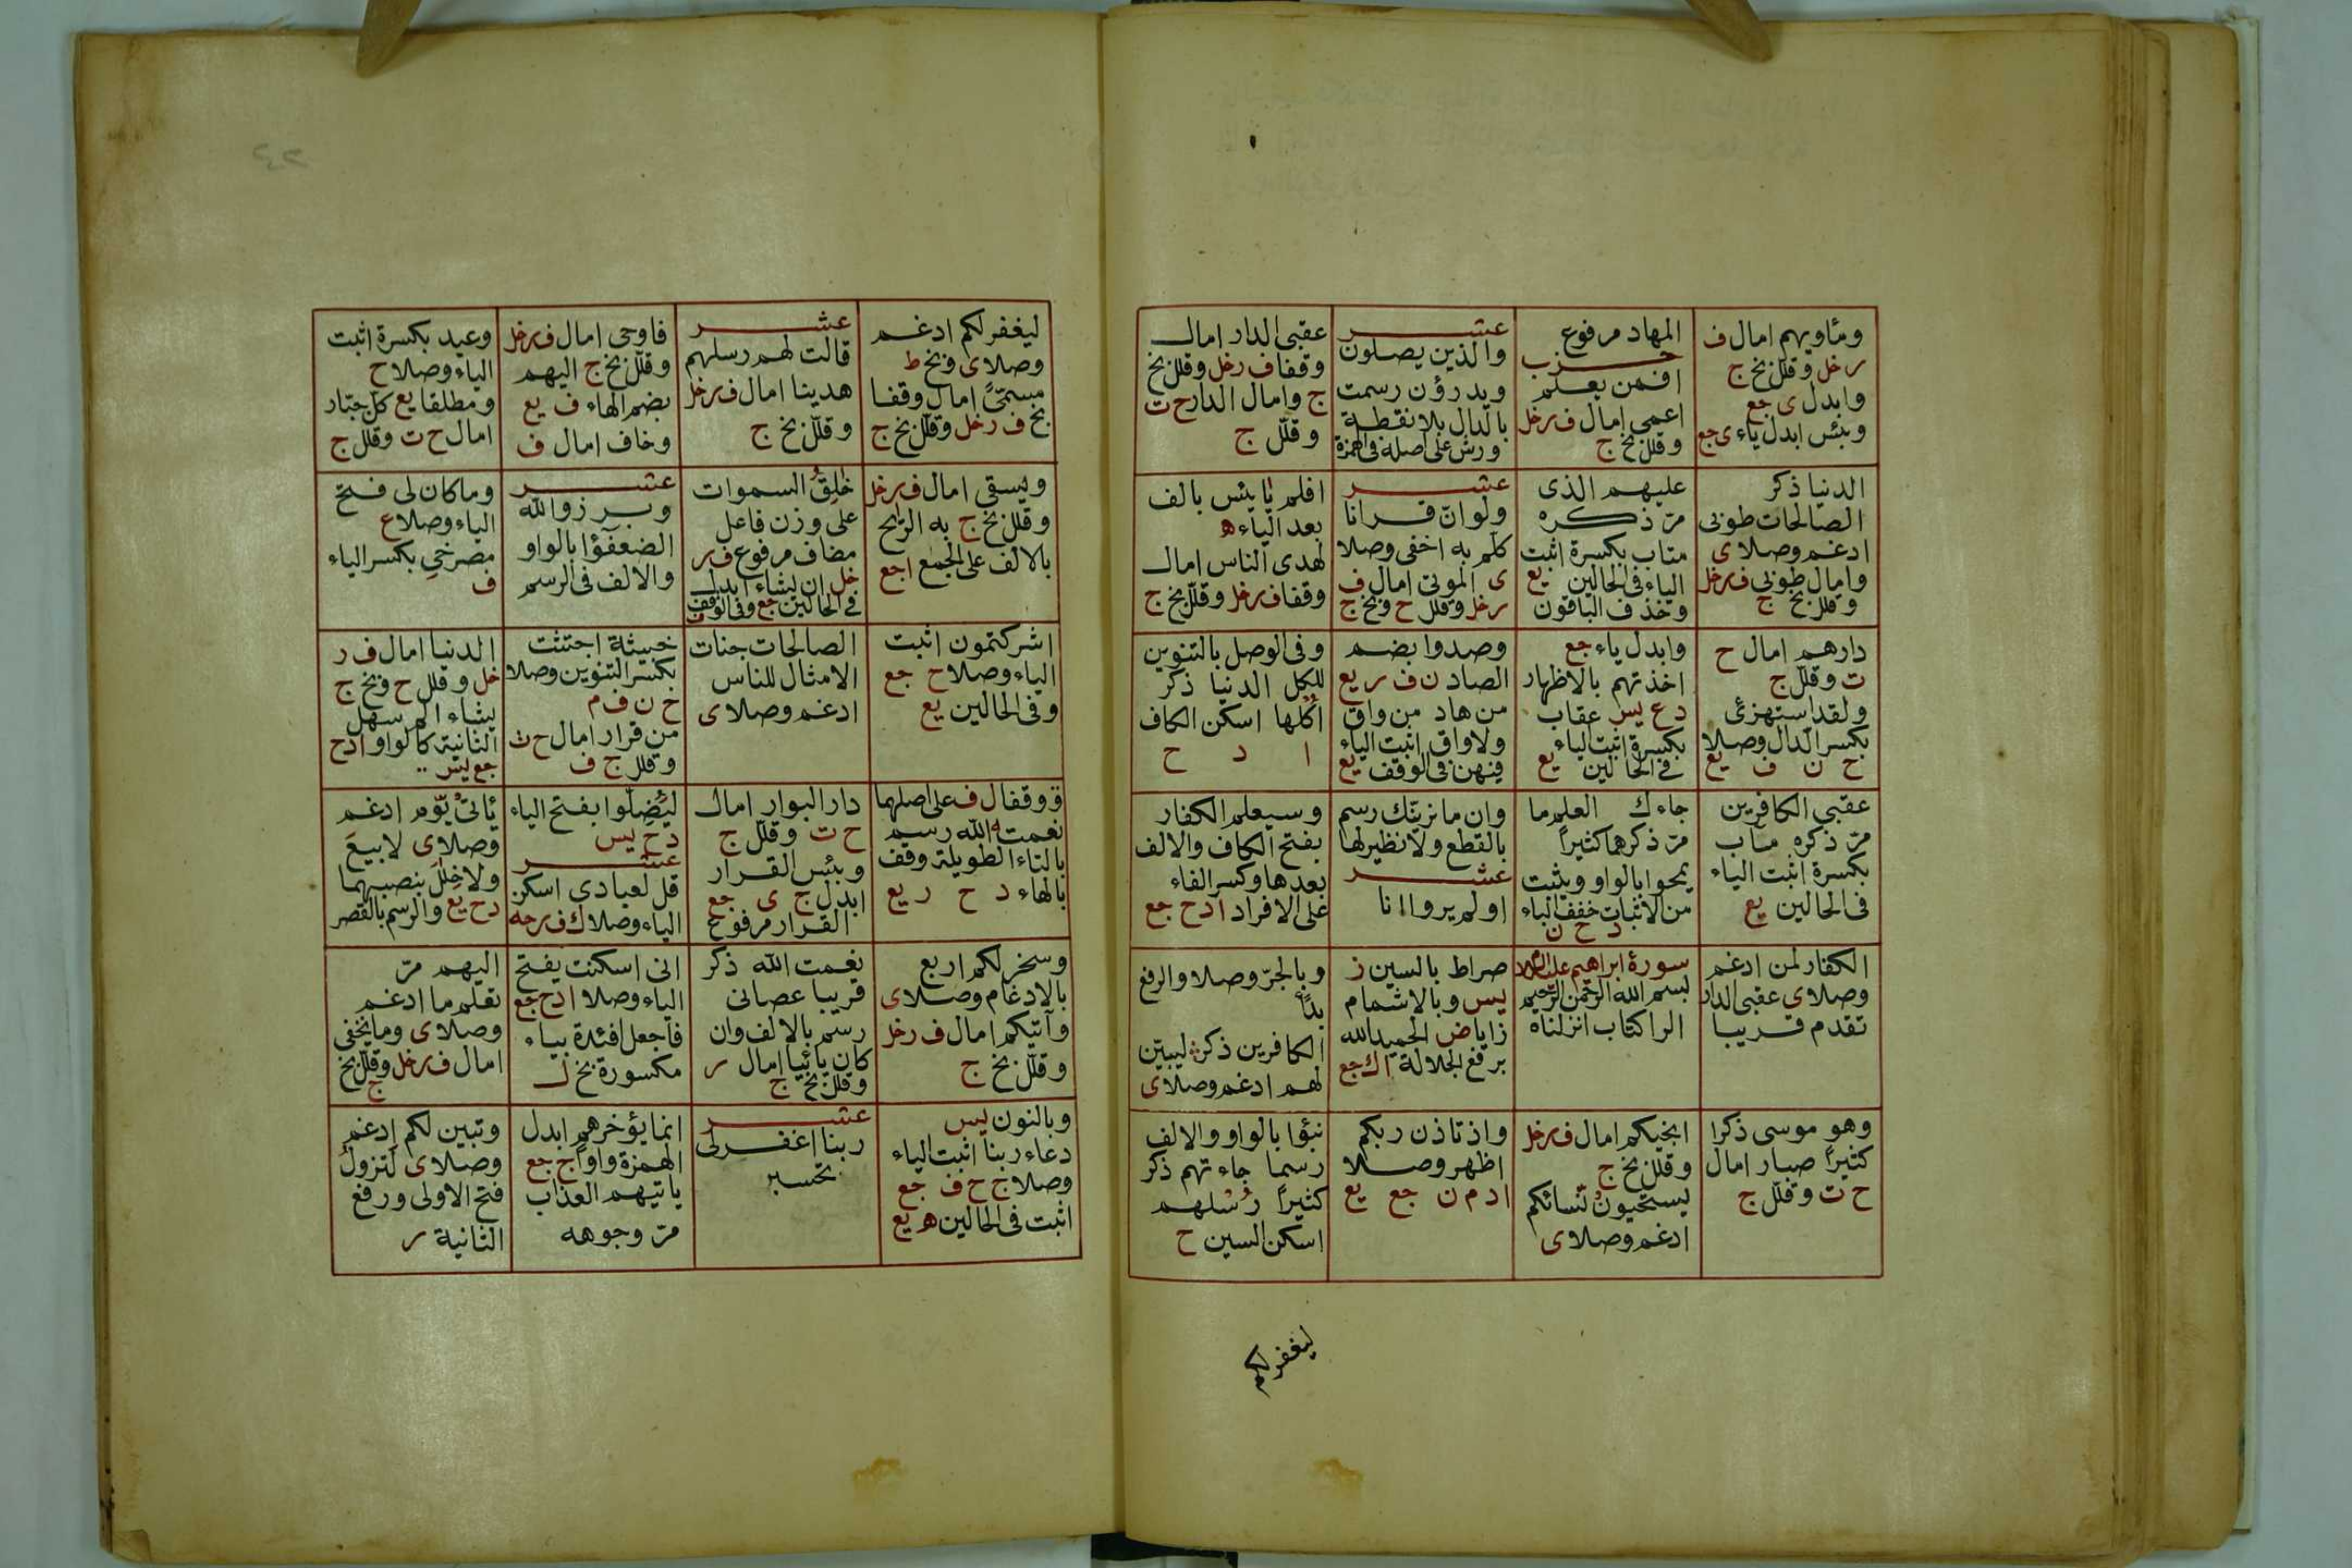 ومأويهم امال ف
رخل وقلل بخ ج
وابدل ى جع
وبئس ابدل ياء ى جع
المهاد مرفوع
حزب
افمن يعلم
اعمى امال ف رخل
وقلل بخ ج
عشر
والذين يصلون
ويدرؤن رسمت
بالدال بلا نقطة
ورش على اصله فى الهمزة
عقبى الدار امال
وقفا ف رخل وقلل بخ
ج وامال الدار ح ت
وقلل ج
الدنيا ذكر
الصالحات طوبى
ادغم وصلا ى
وامال طوبى ف رخل
وقلل بخ ج
عليهم الذى
مر ذكره
متاب بكسرة اثبت
الياء فى الحالين يع
وحذف الباقون
عشر
ولو ان قرانا
كلم به اخفى وصلا
ى الموتى امال ف
رخل وقلل ح وبخ ج
افلم يايئس بالف
بعد الياء ه
لهدى الناس امال
وقفا ف رخل وقلل بخ ج
دارهم امال ح
ت وقلل ج
ولقد استهزئ
بكسر الدال وصلا
ح ن ف يع
وابدل ياء جع
اخذتهم بالاظهار
د ع يس عقاب
بكسرة اثبت الياء
فى الحالين يع
وصدوا بضم
الصاد ن ف ر يع
من هاد من واق
ولا واق اثبت الياء
فيهن فى الوقف يع
وفى الوصل بالتنوين
للكل الدنيا ذكر
اكلها اسكن الكاف
ا د ح
عقبى الكافرين
مر ذكره مآب
بكسرة اثبت الياء
فى الحالين يع
جاءك العلم ما
مر ذكرهما كثيرا
يمحوا بالواو ويثبت
من الاثبات خفف الباء
د ح ن
وان ما نرينك رسم
بالقطع ولا نظير لها
عشر
اولم يروا انا
وسيعلم الكفار
بفتح الكاف والالف
بعدها وكسر الفاء
على الافراد ا د ح جع
الكفار لمن ادغم
وصلا ى عقبى الدار
تقدم قريبا
سورة ابراهيم عليه السلام
بسم الله الرحمن الرحيم
الر اكتاب انزلناه
صراط بالسين ز
يس وبالاشمام
زايا ض الحميد الله
برفع الجلالة ا ك جع
وبالجر وصلا والرفع
بدأ
الكافرين ذكر ليبين
لهم ادغم وصلا ى
وهو موسى ذكرا
كثيرا صبار امال
ح ت وقلل ج
انجيكم امال ف رخل
وقلل بخ ج
ليستحيون نسائكم
ادغم وصلا ى
واذ تاذن ربكم
اظهر وصلا
ا د م ن جع يع
نبؤا بالواو والالف
رسما جاءتهم ذكر
كثيرا رسلهم
اسكن السين ح
ليغفر لكم
ليغفر لكم ادغم
وصلا ى وبخ ط
مسمى امال وقفا
بخ ف رخل وقلل بخ ج
عشر
قالت لهم رسلهم
هدينا امال ف رخل
وقلل بخ ج
فاوحى امال ف رخل
وقلل بخ ج اليهم
بضم الهاء ف يع
وخاف امال ف
وعيد بكسرة اثبت
الياء وصلا ح
ومطلقا يع كل جبار
امال ح ت وقلل ج
ويسقى امال ف رخل
وقلل بخ ج به الريح
بالالف على الجمع ا جع
خالق السموات
على وزن فاعل
مضاف مرفوع ف ر
خل ان يشاء ابدل
فى الحالين جع وفى الوقف
عشر
وبرزوا لله
الضعفؤا بالواو
والالف فى الرسم
وما كان لى فتح
الياء وصلا ع
مصرخي بكسر الياء
ف
اشركتمون اثبت
الياء وصلا ح جع
وفى الحالين يع
الصالحات جنات
الامثال للناس
ادغم وصلا ى
خبيثة اجتثت
بكسر التنوين وصلا
ح ن ف م
من قرار امال ح ت
وقلل ج ف
الدنيا امال ف ر
خل وقلل ح وبخ ج
يشاء الم سهل
الثانية كالواو ا د ح
جع يس
ق وقفا ل ف على اصلهما
نعمت الله رسم
بالتاء الطويلة وقف
بالهاء د ح ر يع
دار البوار امال
ح ت وقلل ج
وبئس القرار
ابدل ج ى جع
القرار مرفوع
ليضلوا بفتح الياء
د ح يس
عشر
قل لعبادى اسكن
الياء وصلا ك ف ر حه
ياتى يوم ادغم
وصلا ى لا بيع
ولا خلل بنصبهما
د ح يع والرسم بالقصر
وسخر لكم اربع
بالادغام وصلا ى
وآتيكم امال ف رخل
وقلل بخ ج
نعمت الله ذكر
قريبا عصانى
رسم بالالف وان
كان يائيا امال ر
وقلل بخ ج
انى اسكنت يفتح
الياء وصلا ا د ح جع
فاجعل افئدة بياء
مكسورة بخ ل
اليهم مر
تعلم ما ادغم
وصلا ى وما يخفى
امال ف رخل وقلل بخ
ج
وبالنون يس
دعاء ربنا اثبت الياء
وصلا ج ح ف جع
اثبت فى الحالين ه يع
عشر
ربنا اغفر لى
تحسبر
انما يؤخرهم ابدل
الهمزة واوا ج جع
ياتيهم العذاب
مر وجوهه
وتبين لكم ادغم
وصلا ى لتزول
فتح الاولى ورفع
الثانية ر